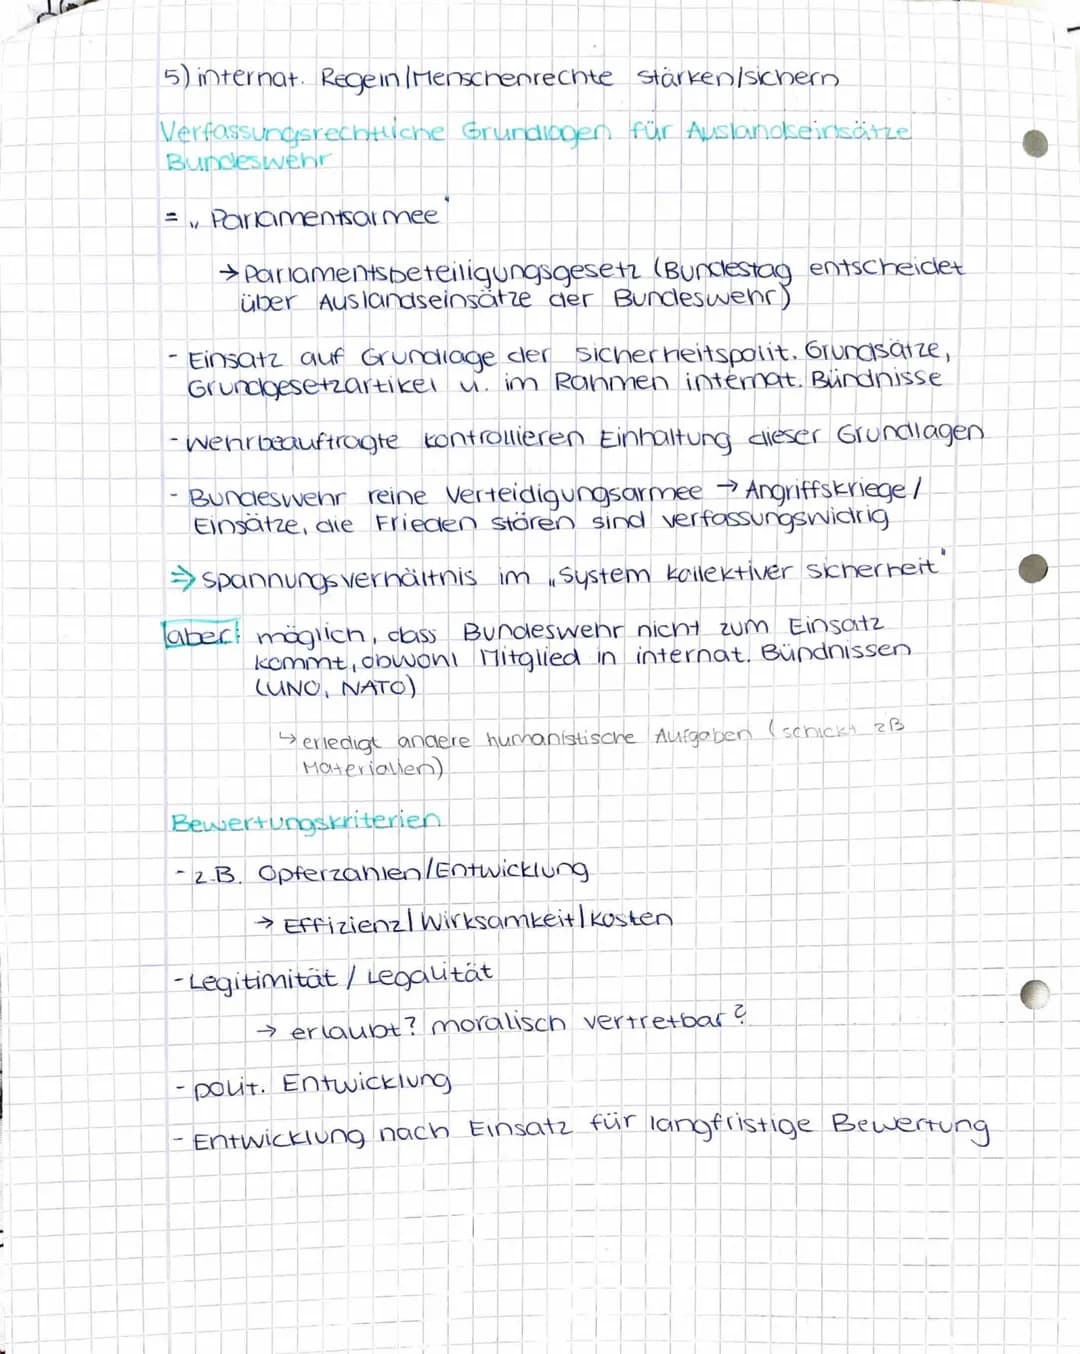 5) internat. Regeln/Menschenrechte stärken/sichern
Verfassungsrechtliche Grundlagen für Auslandseinsätze
Bundeswehr
= „Parlamentsarmee"
→ Parlamentsbeteiligungsgesetz (Bundestag entscheidet
über Auslandseinsätze der Bundeswehr)
- Einsatz auf Grundlage der sicherheitspolit. Grundsätze,
Grundgesetzartikel u. im Rahmen internat. Bündnisse
- Wehrbeauftragte kontrollieren Einhaltung dieser Grundlagen
- Bundeswehr reine Verteidigungsarmee → Angriffskriege/
Einsätze, die Frieden stören sind verfassungswidrig
⇒ Spannungsverhältnis im „System kollektiver Sicherheit"
aber: möglich, dass Bundeswehr nicht zum Einsatz
kommt, obwohl Mitglied in internat. Bündnissen
(UNO, NATO)
↳ erledigt andere humanistische Aufgaben (schickt zB
Materialien)
Bewertungskriterien
- z.B. Opferzahlen/Entwicklung
→ Effizienz/Wirksamkeit/Kosten
- Legitimität / Legalität
→ erlaubt? moralisch vertretbar?
- polit. Entwicklung
- Entwicklung nach Einsatz für langfristige Bewertung